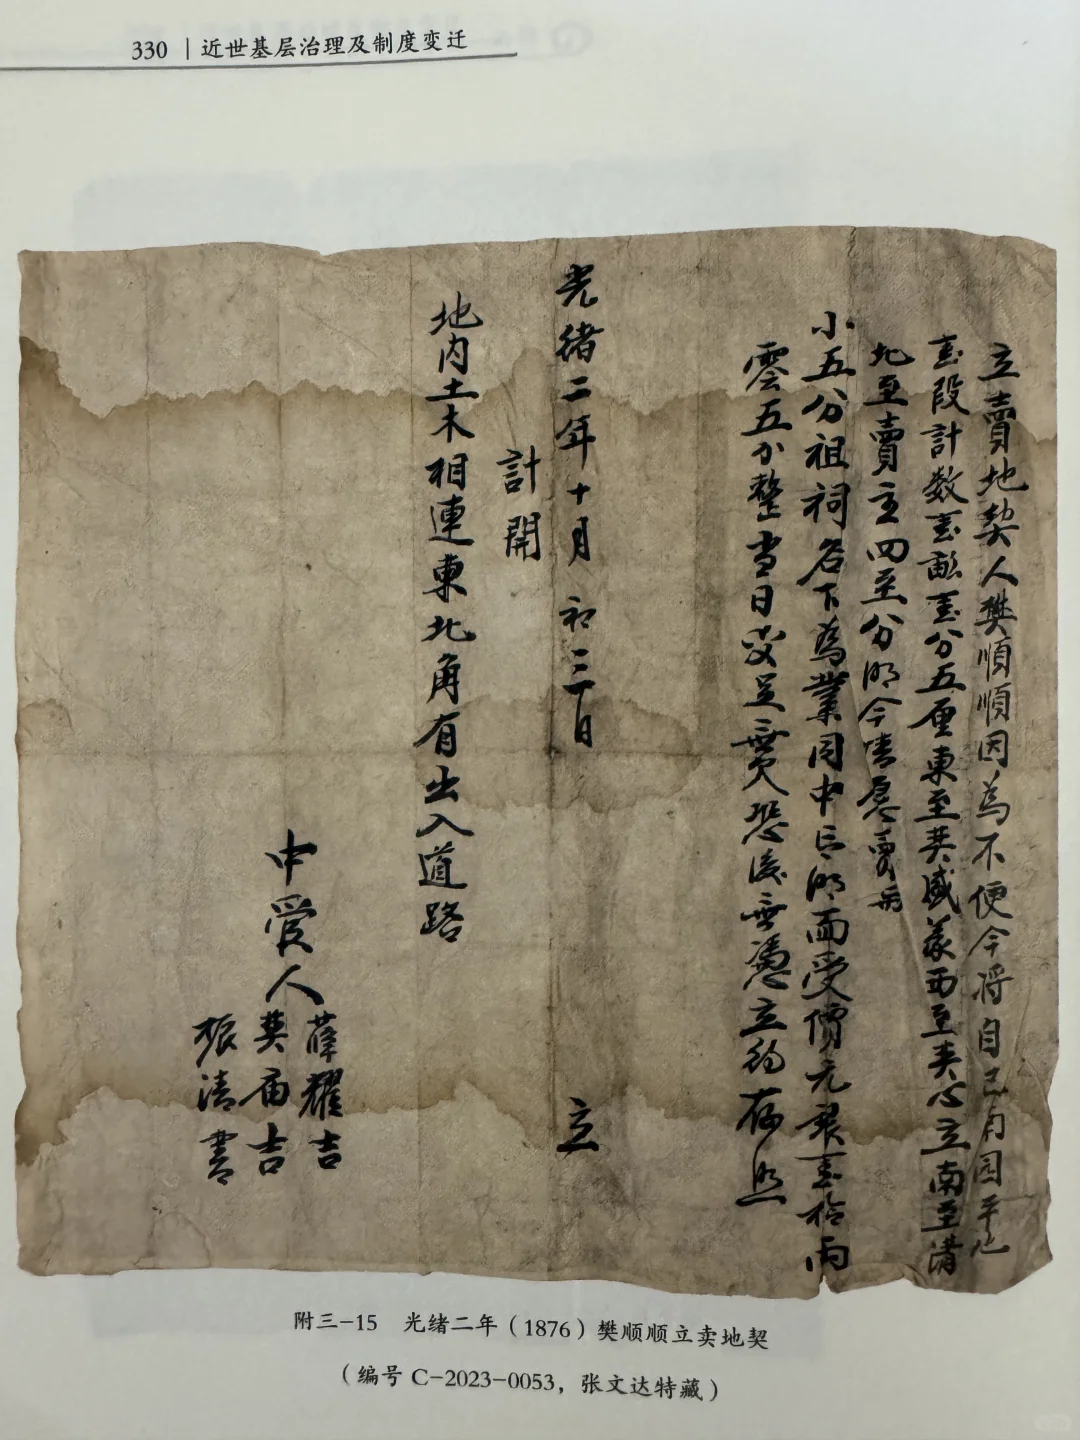 330 | 近世基层治理及制度变迁
立賣地契人樊順順因為不便今将自己南园平地
壹段計数壹畝壹分五厘東至樊盛義西至夹心立南至溝
北至賣主四至分明今情愿賣與
小五分祖祠名下為業同中言明而受價元銀壹拾兩
零五分整当日交足無欠恐後無憑立約存照
光绪二年十月初三日 立
計開
地内土木相連東北角有出入道路
中愛人
薛耀吉
樊庙吉
振清書
附三-15 光绪二年（1876）樊顺顺立卖地契
（编号 C-2023-0053，张文达特藏）